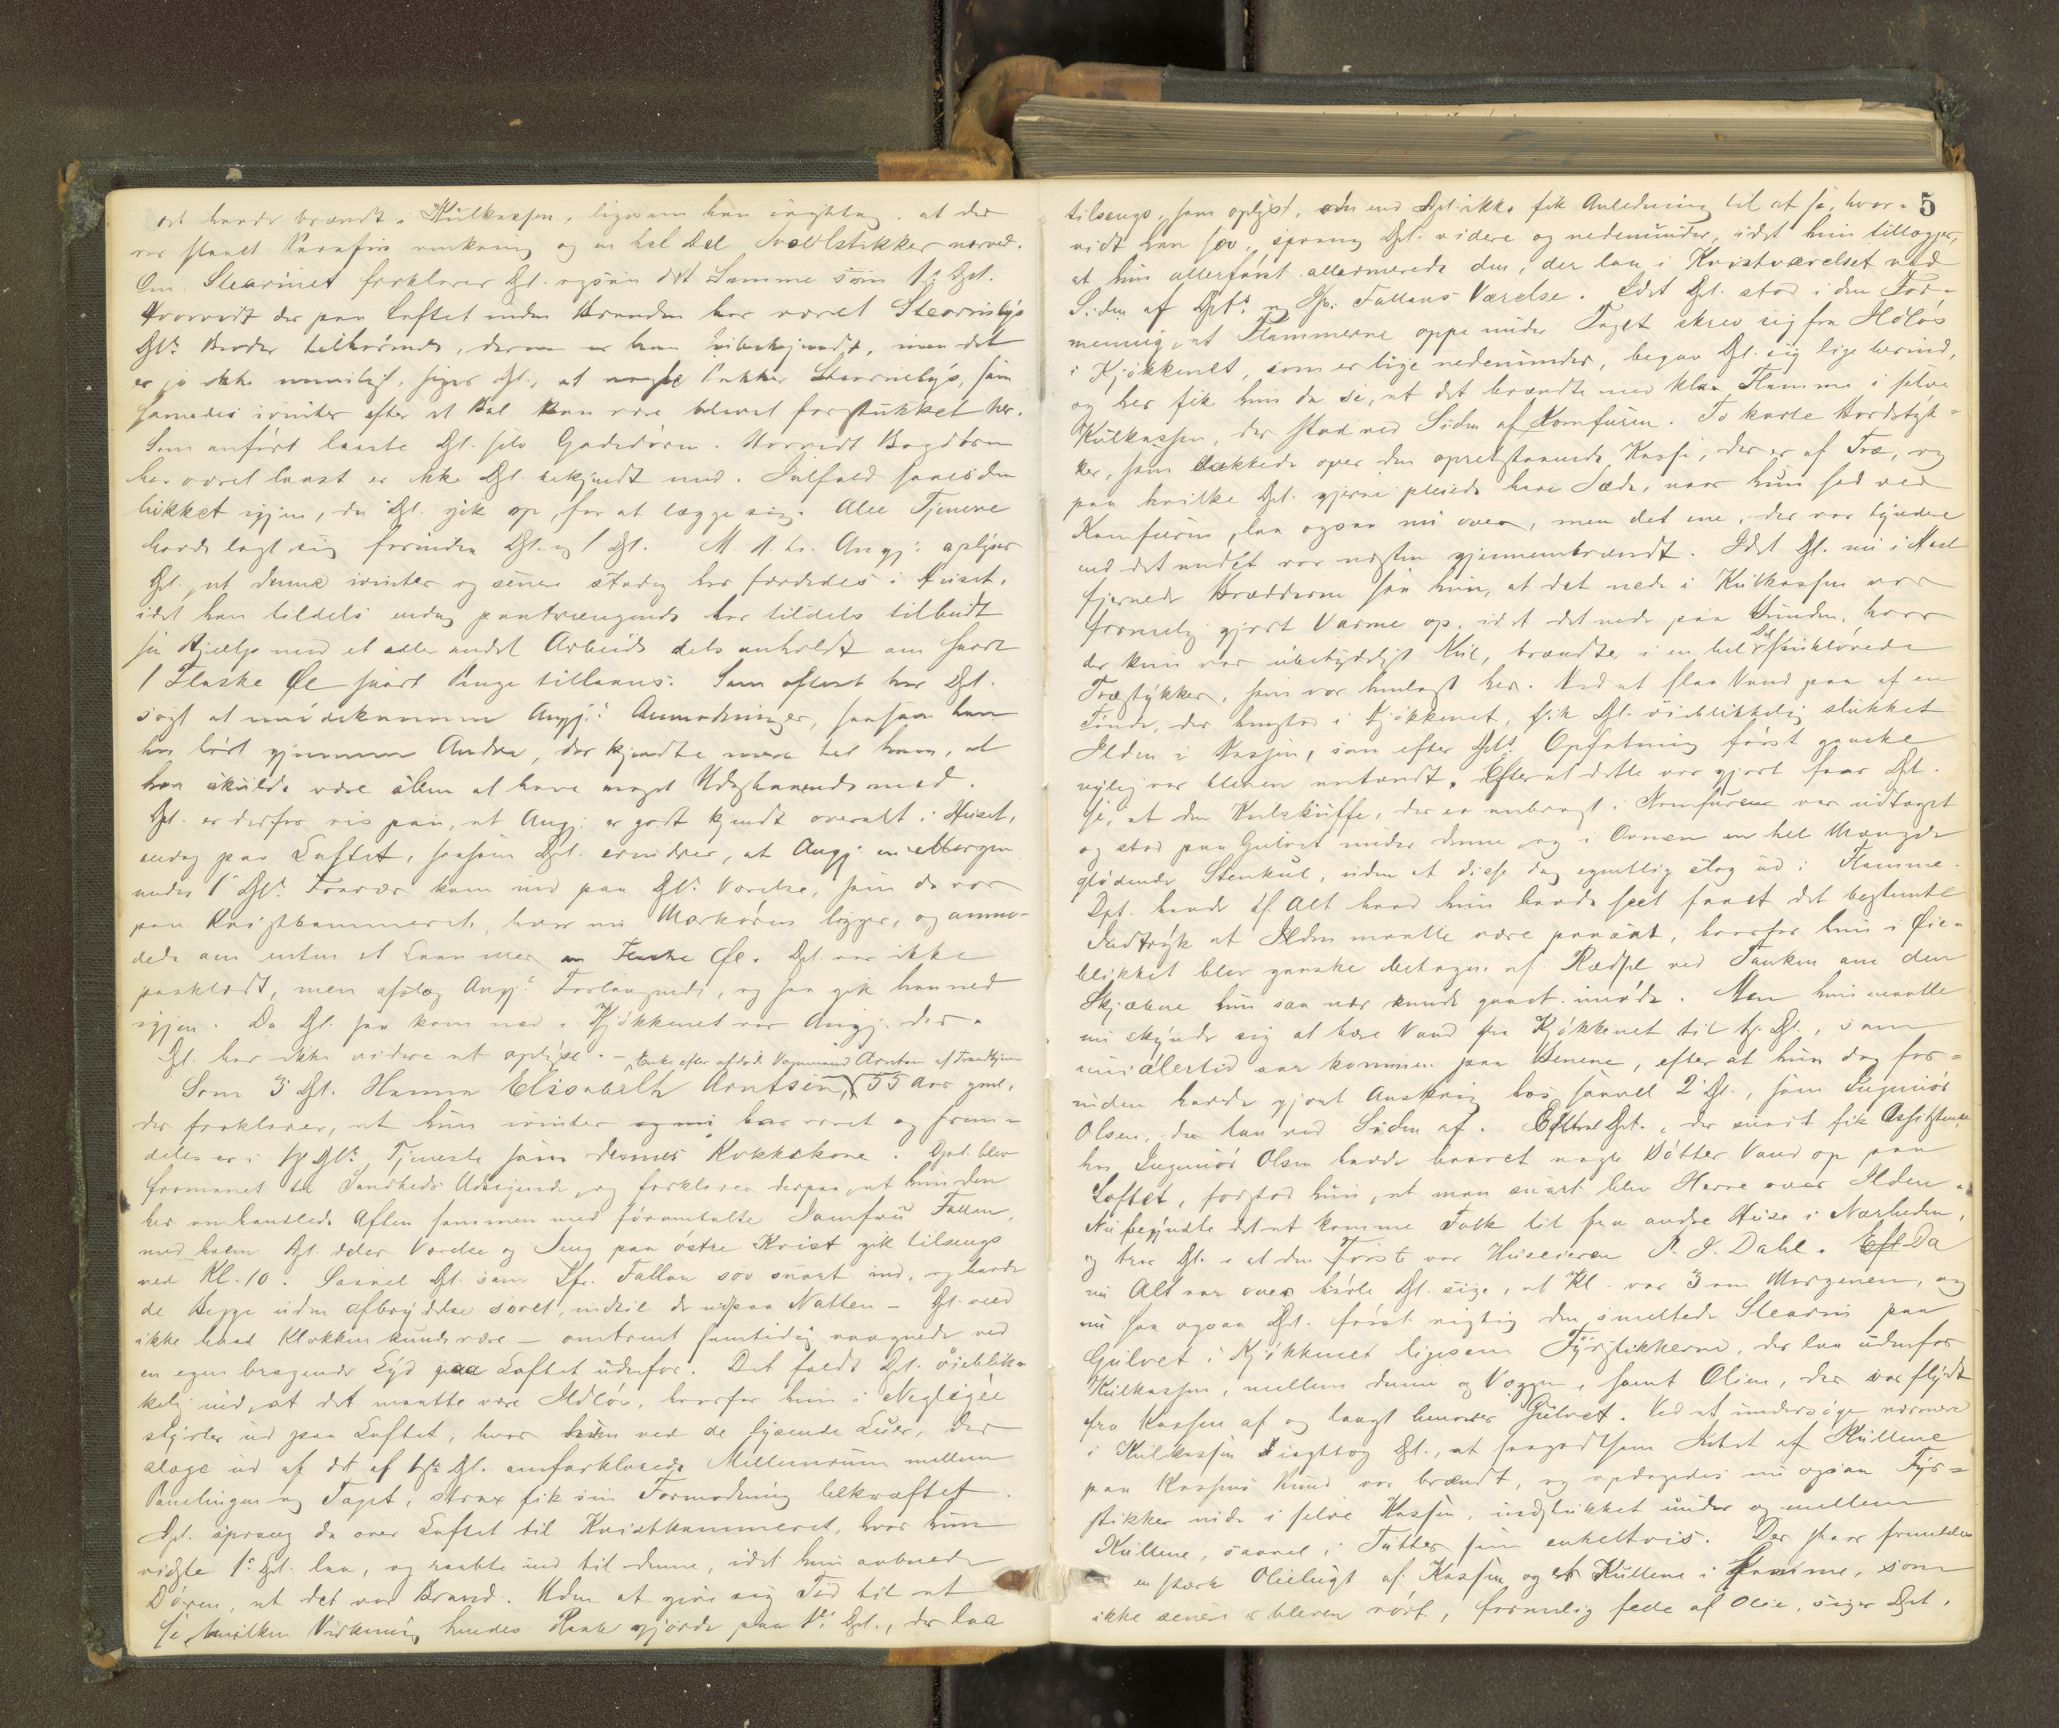 det havde brændt i Kulkassen, ligesom han iagttog, at der
var slaaet Parafin omkring og en hel Del Svovlstikker nærved.
Om Stearinet forklarer Dpt. ogsaa det Samme som 1ste Dpt.
Hvorvidt der paa Loftet inden Branden har været Stearinlys
Dpts. Broder tilhørende, derom er han ubekjendt, men det
er jo ikke umuligt, siger Dpt., at nogle Pakker Stearinlys, som
savnedes ivinter efter et Bal kan være blevet forstukket her.
Som anført laaste Dpt. selv Gadedøren. Hvorvidt Bagdøren
har været laast er ikke Dpt. bekjendt med. Ialfald saaes den
lukket igjen, da Dpt. gik op for at lægge sig. Alle Tjenere
havde lagt sig forinden Dpt. og 1 Dpt. M. H. t. Angj: oplyser
Dpt., at denne ivinter og senere stadig har færdedes i Huset,
idet han tildels endog paatrængende har tildels tilbudt
sin Hjælp med et eller andet Arbeide dels anholdt om snart
1 Flaske Øl snart Penge tillaans. Som oftest har Dpt.
søgt at imødekomme Angj:s Anmodninger, saasom han
har hørt gjennem Andre, der kjendte mere til ham, at
han skulde være slem at have noget Udestaaende med.
Dpt. er derfor vis paa, at Angj: er godt kjendt overalt i Huset,
endog paa Loftet, saasom Dpt. erindrer, at Angj: en Morgen
under 1ste Dpts. Fravær kom ind paa Dpts. Værelse, som da var
paa Kvistkammeret, hvor nu Markøren ligger, og anmo-
dede om enten et Laan eller en Flaske Øl. Dpt. var ikke
paaklædt, men afslog Angj:s Forlangende, og saa gik han ned
igjen. Da Dpt. saa kom ned i Kjøkkenet var Angj: der.
Dpt. har ikke videre at oplyse. – Enke efter afdøde Vognmand Arntsen af Trondhjem
Som 3 Dpt. Hanna Elisabeth Arntsen, 55 Aar gml.,
der forklarer, at hun ivinter og nu har været og frem-
deles er i 1ste Dpts. Tjeneste som dennes Kokkekone. Dpt. blev
formanet til Sandheds Udsigende, og forklarer derpaa, at hun den
her omhandlede Aften sammen med foromtalte Jomfru Fallan,
med hvem Dpt. deler Værelse og Seng paa østre Kvist gik tilsengs
ved Kl. 10. Saavel Dpt. som Jfr. Fallan sov snart ind, og havde
de Begge uden afbrydelse sovet, indtil de udpaa Natten – Dpt. veed
ikke hvad Klokken kunde være – omtrent samtidig vaagnede ved
en egen bragende Lyd paa Loftet udenfor. Det faldt Dpt. øieblik-
kelig ind, at det maatte være Ildløs, hvorfor hun i Negligée
styrter ud paa Loftet, hvor hun ved de lysende Luer, der
sloge ud af det af 1ste Dpt. omforklarede Mellemrum mellem
Panelingen og Taget, strax fik sin Formodning bekræftet.
Dpt. sprang da over Loftet til Kvistkammeret, hvor hun
vidste 1ste Dpt. laa, og raabte ind til denne, idet hun aabnede
Døren, at det var Brand. Uden at give sig Tid til at
se, hvilken Virkning hendes Raab gjorde paa 1ste Dpt., der laa
5
tilsengs, som oplyst, uden end Dpt. ikke fik Anledning til at se, hvor-
vidt han sov, sprang Dpt. videre og nedenunder, idet hun tillægger,
at hun allerførst allarmerede den, der laa i Kvistværelset ved
Siden af Dpts. og Jfr. Fallans Værelse. Idet Dpt. stod i den For-
mening, at Flammerne oppe under Taget skrev sig fra Ildløs
i Kjøkkenet, som er lige nedenunder, begav Dpt. sig lige herind,
og her fik hun da se, at det brændte med klar Flamme i selve
Kulkassen, der stod ved Siden af Komfuren. To korte Bordstyk-
ker, som dækkede over den opretstaaende Kasse, der er af Træ, og
paa hvilke Dpt. gjerne pleiede have Sæde, naar hun sad ved
Komfuren, laa ogsaa nu over, men det ene, der var tyndere
end det andet var næsten gjennembrændt. Idet Dpt. nu i Hast
fjernede Brædderne saa hun, at det nede i Kulkassen var
formelig gjort Varme op, idet det nede paa Bunden, hvor
der kun var ubetydeligt Kul, brændte i en hel Del smukløvede
Træstykker, som var henlagt her. Ved at slaa Vand paa af en
Tønde, der henstod i Kjøkkenet, fik Dpt. øieblikkelig slukket
Ilden i Kassen, som efter Dpts. Opfatning først ganske
nylig var bleven antændt. Efter at dette var gjort faar Dpt.
se, at den Kulskuffe, der er anbragt i Komfuren var udtaget
og stod paa Gulvet under denne og i Ovnen en hel Mængde
glødende Stenkul, uden at disse dog egentlig slog ud i Flamme.
Dpt. havde af Alt hvad hun havde seet faaet det bestemte
Indtryk at Ilden maatte være paasat, hvorfor hun i Øie-
blikket blev ganske betagen af Rædsel ved Tanken om den
Skjæbne hun saa nær kunde gaaet imøde. Men hun maatte
nu skynde sig at bære Vand fra Kjøkkenet til 1ste Dpt., som
imidlertid var kommen paa Benene, efter at hun dog for-
inden havde gjort Anskrig hos saavel 2 Dpt., som Ingeniør
Olsen, der laa ved Siden af. Efterat Dpt., der snart fik Assistence
hos Ingeniør Olsen havde baaret nogle Bøtter Vand op paa
Loftet, forstod hun, at man snart blev Herre over Ilden.
Nu begyndte det at komme Folk til fra andre Huse i Nærheden,
og tror Dpt. at den Første var Huseieren P. J. Dahl. Eft Da
nu Alt var over hørte Dpt. sige, at Kl. var 3 om Morgenen, og
nu saa ogsaa Dpt. først rigtig den smeltede Stearin paa
Gulvet i Kjøkkenet ligesom Fyrstikkerne, der laa udenfor
Kulkassen, mellem denne og Væggen, samt Olien, der var flydt
fra Kassen af og langt henover Gulvet. Ved at undersøge nærmere
i Kulkassen iagttog Dpt., at saagodtsom Intet af Kullene
paa Kassens Bund var brændt, og opdagedes nu ogsaa Fyr-
stikker nede i selve Kassen, indstukket under og mellem
Kullene, saavel i Totter som enkeltvis. Der staar fremdeles
en stærk Olielugt af Kassen og er Kullene i samme, som
ikke senere er bleven rørt, formelig fede af Olie, siger Dpt.